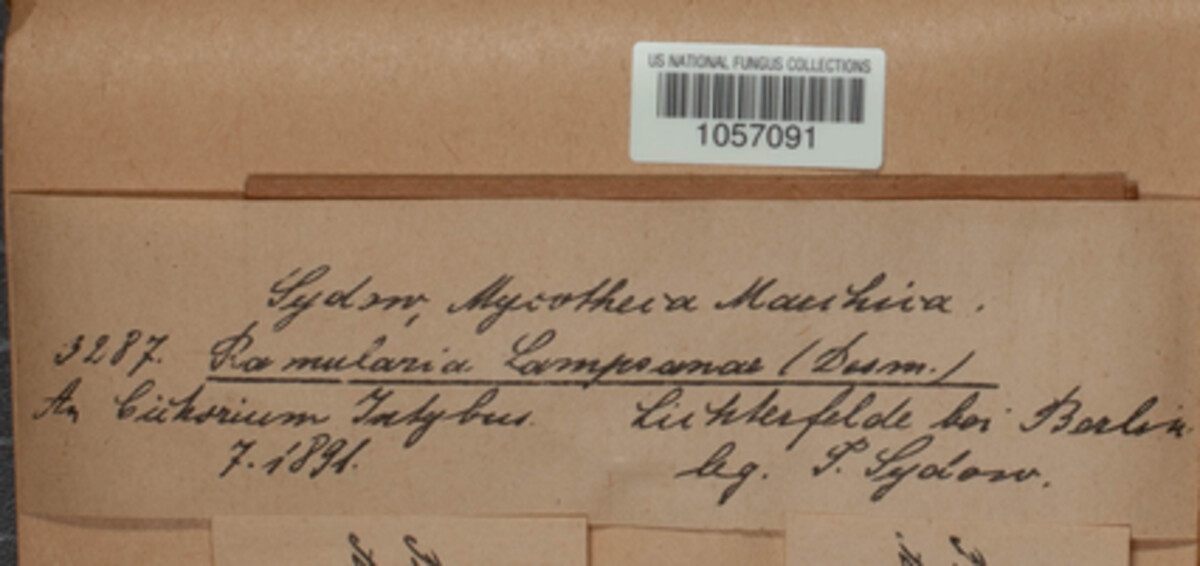 US NATIONAL FUNGUS COLLECTIONS
1057091
Sydow, Mycotheca Marchica.
3287. Ramularia Lampsanae (Desm.)
An Cichorium Intybus. Lichterfelde bei Berlin
7. 1891. leg. P. Sydow.